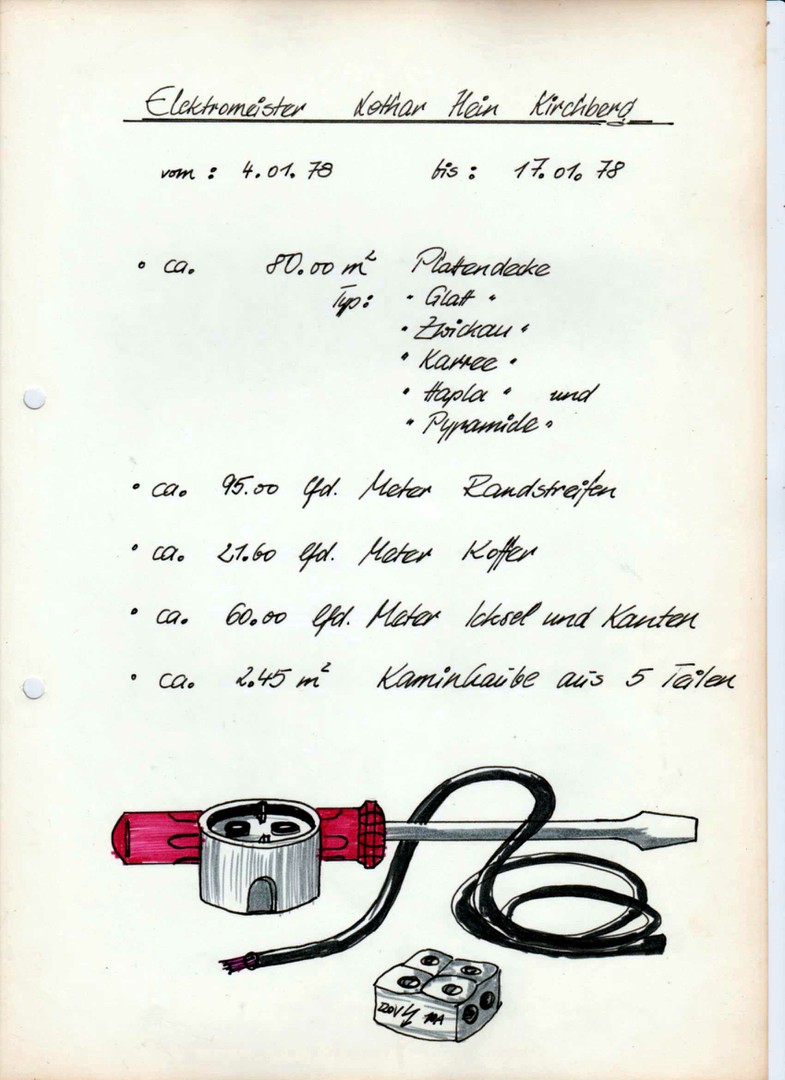 Elektromeister Lothar Hein Kirchberg
vom : 4.01.78 bis : 17.01.78
• ca. 80.00 m² Plattendecke
Typ: "Glatt"
"Zwickau"
"Karree"
"Hapla" und
"Pyramide"
• ca. 95.00 lfd. Meter Randstreifen
• ca. 21.60 lfd. Meter Koffer
• ca. 60.00 lfd. Meter Icksel und Kanten
• ca. 2.45 m² Kaminhaube aus 5 Teilen
220V 1A